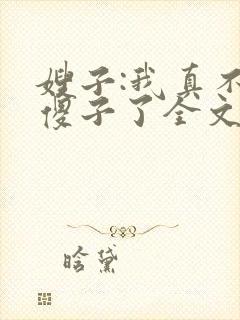 嫂子:我真不
傻子了全文
晗黛